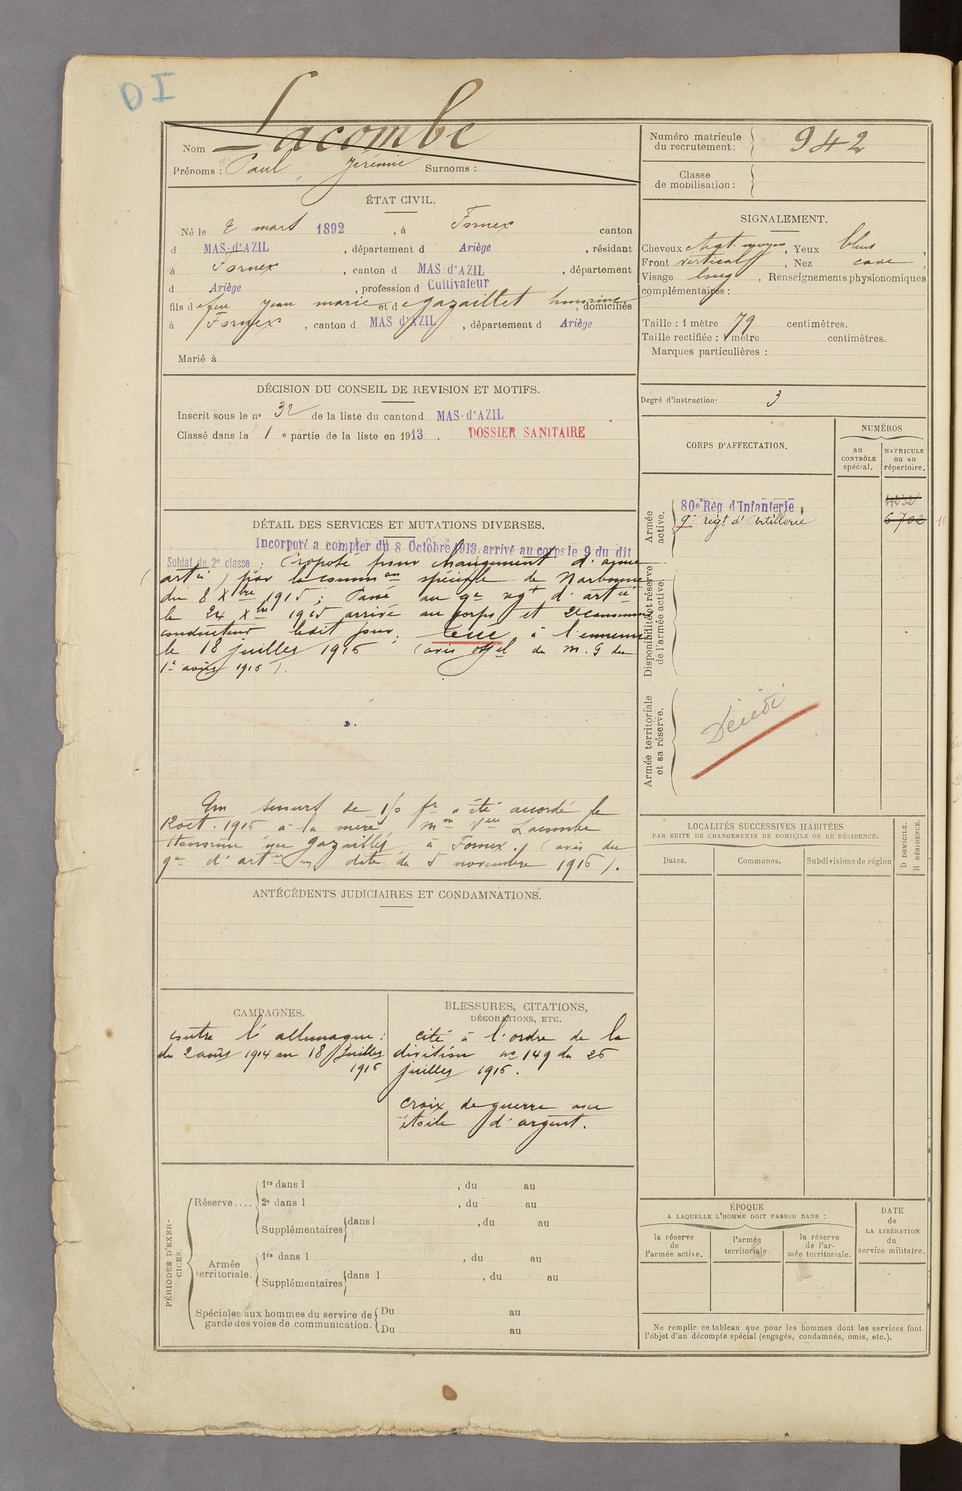 DI
Nom Lacombe
Prénoms : Paul, Jérémie Surnoms :
Numéro matricule du recrutement : 942
Classe de mobilisation :
ÉTAT CIVIL.
Né le 2 mars 1892, à Fornex canton
d MAS-d'AZIL, département d Ariège, résidant
à Fornex, canton d MAS d'AZIL, département
d Ariège, profession d Cultivateur
fils de feu Jean marie et de gazaillet honorine, domiciliés
à Fornex, canton d MAS d'AZIL, département d Ariège
Marié à
SIGNALEMENT.
Cheveux chat. moyen, Yeux bleus,
Front vertical, Nez cave,
Visage long, Renseignements physionomiques
complémentaires :
Taille : 1 mètre 79 centimètres.
Taille rectifiée : 1 mètre centimètres.
Marques particulières :
Degré d'instruction : 3
DÉCISION DU CONSEIL DE REVISION ET MOTIFS.
Inscrit sous le no 32 de la liste du canton d MAS-d'AZIL
Classé dans la 1 e partie de la liste en 1913. DOSSIER SANITAIRE
DÉTAIL DES SERVICES ET MUTATIONS DIVERSES.
Incorporé a compter du 8 Octobre 1913, arrivé au corps le 9 du dit
Soldat de 2e classe; (proposé pour changement d'arme
artie) par la comm on spéciale de Narbonne
du 8 Xbre 1915; Passé au 9e regt d'artie
le 24 Xbre 1915 arrivé au corps et 2e canonnier
conducteur ledit jour; tué à l'ennemi
le 18 juillet 1916 (avis offel du M. G du
1er août 1916).
Un secours de 150 fr a été accordé le
12 oct. 1916 à la mère, Mme Vve Lacombe
Honorine née gazaillet, à Fornex. (avis du
9e d'artie en date du 5 novembre 1916).
ANTÉCÉDENTS JUDICIAIRES ET CONDAMNATIONS.
CAMPAGNES.
contre l'allemagne :
du 2 août 1914 au 18 juillet
1916
BLESSURES, CITATIONS,
DÉCORATIONS, ETC.
cité à l'ordre de la
division no 149 du 26
juillet 1916.
croix de guerre avec
étoile d'argent.
PÉRIODES D'EXERCICES.
Réserve.... 1re dans l, du au
2e dans l, du au
Supplémentaires dans l, du au
Armée territoriale. 1re dans l, du au
Supplémentaires dans l, du au
Spéciales aux hommes du service de garde des voies de communication. Du au
Du au
CORPS D'AFFECTATION.
NUMÉROS
au CONTRÔLE spécial.
MATRICULE ou au répertoire.
Armée active.
80e Rég d'Infanterie,
9e Regt d'Artillerie
6702
Disponibilité et réserve de l'armée active.
Armée territoriale et sa réserve.
Décédé
LOCALITÉS SUCCESSIVES HABITÉES
PAR SUITE DE CHANGEMENTS DE DOMICILE OU DE RÉSIDENCE.
Dates. Communes. Subdivisions de région
D DOMICILE.
R RÉSIDENCE.
ÉPOQUE
A LAQUELLE L'HOMME DOIT PASSER DANS :
la réserve de l'armée active.
l'armée territoriale.
la réserve de l'armée territoriale.
DATE de LA LIBÉRATION du service militaire.
Ne remplir ce tableau que pour les hommes dont les services font
l'objet d'un décompte spécial (engagés, condamnés, omis, etc.).